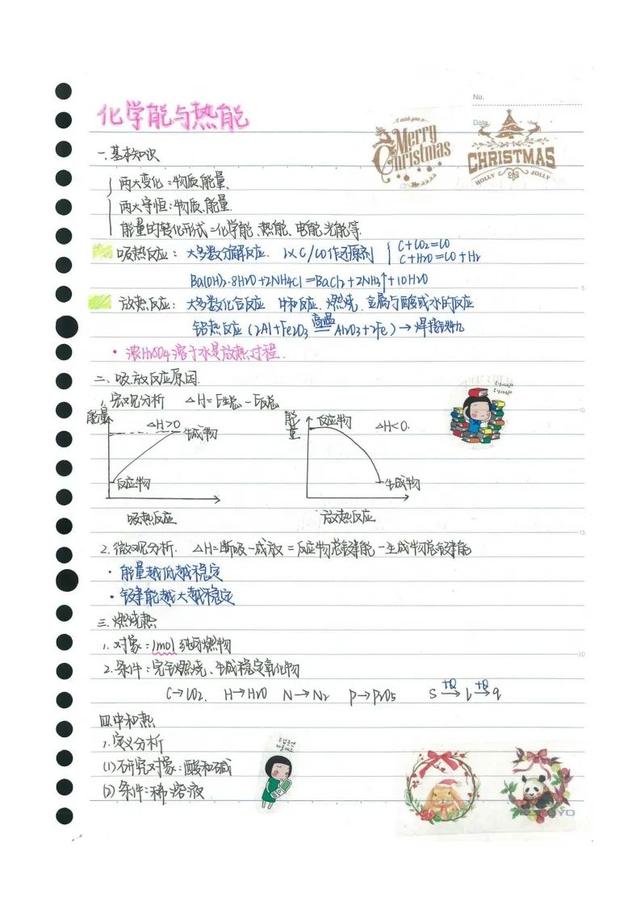 No.
化学能与热能
Date
I wish you
Merry Christmas
CHRISTMAS
HOLLY JOLLY
一.基本知识
两大变化:物质,能量.
两大守恒:物质,能量
能量的转化形式=化学能、热能、电能、光能等.
吸热反应: 大多数分解反应. 以C/CO作还原剂 C+CO2=CO
C+H2O=CO+H2
Ba(OH)2·8H2O+2NH4Cl=BaCl2+2NH3↑+10H2O
放热反应: 大多数化合反应 中和反应、燃烧、金属与酸或水的反应
铝热反应(2Al+Fe2O3 高温 Al2O3+2Fe)→焊接钢轨
• 浓H2SO4溶于水是放热过程.
二、吸放反应原因.
1.宏观分析 △H=E生总-E反总
能量 △H>0 生成物
反应物
吸热反应
能量 反应物 △H<0.
生成物
放热反应
2.微观分析. △H=断吸-成放=反应物总键能-生成物总键能
• 能量越低越稳定
• 键能越大越稳定
三、燃烧热
1.对象:1mol纯可燃物
2.条件:完全燃烧、生成稳定氧化物
C→CO2. H→H2O N→N2 P→P2O5 S +Q→ l +Q→ g
四.中和热
1.定义分析
(1)研究对象:酸和碱
(2)条件:稀溶液